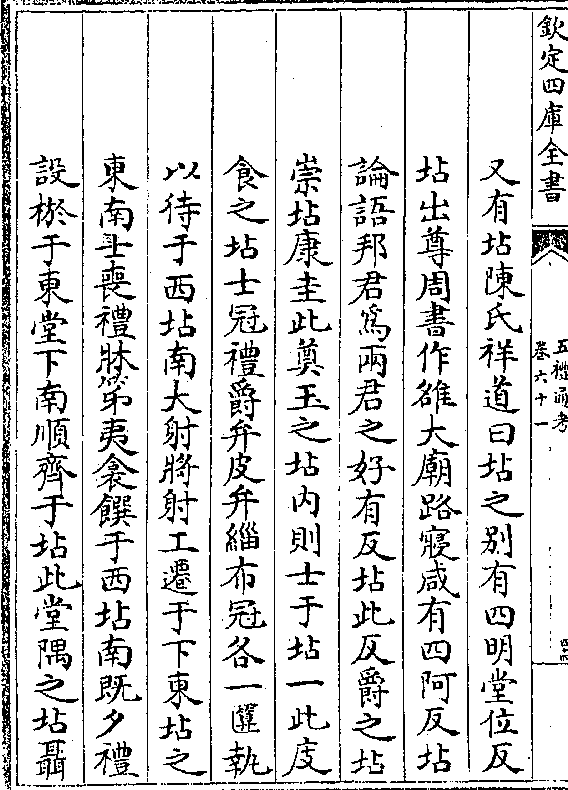 欽定四庫全書
五禮通考
卷六十一
又有坫陳氏祥道曰坫之别有四明堂位反
坫出尊周書作雒大廟路寢咸有四阿反坫
論語邦君爲兩君之好有反坫此反爵之坫
崇坫康圭此奠玉之坫内則士于坫一此庋
食之坫士冠禮爵弁皮弁緇布冠各一匴執
以待于西坫南大射將射工遷于下東坫之
東南士喪禮牀第夷衾饌于西坫南既夕禮
設棜于東堂下南順齊于坫此堂隅之坫聶